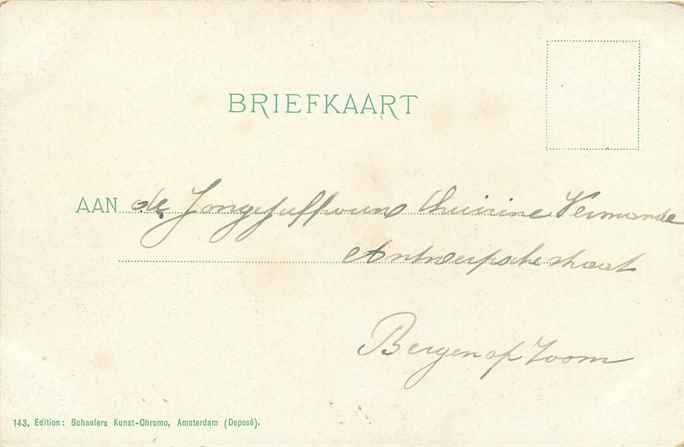 BRIEFKAART
AAN de Jongejuffrouw Vermande
Antwerpschestraat
Bergen op Zoom
143. Edition: Schaefers Kunst-Chromo, Amsterdam (Deposé).